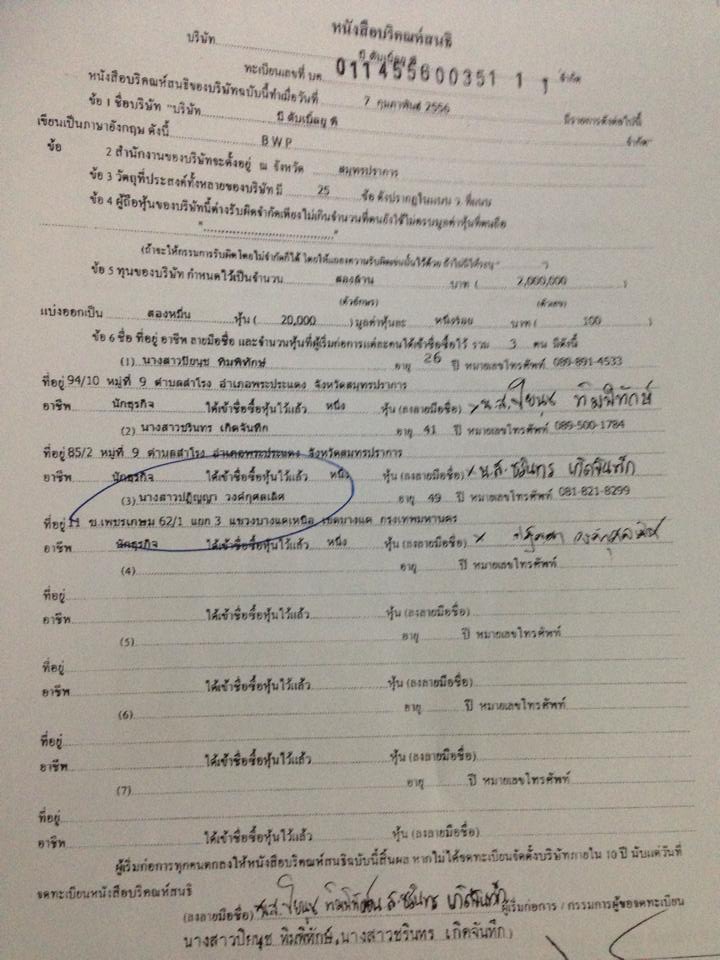 หนังสือบริคณห์สนธิ
บริษัท บี ดับเบิ้ลยู พี จำกัด
ทะเบียนเลขที่ บค. 011455600351 1 1
หนังสือบริคณห์สนธิของบริษัทฉบับนี้ทำเมื่อวันที่ 7 กุมภาพันธ์ 2556 มีรายการดังต่อไปนี้
ข้อ 1 ชื่อบริษัท "บริษัท บี ดับเบิ้ลยู พี จำกัด"
เขียนเป็นภาษาอังกฤษ ดังนี้ B W P
ข้อ 2 สำนักงานของบริษัทจะตั้งอยู่ ณ จังหวัด สมุทรปราการ
ข้อ 3 วัตถุที่ประสงค์ทั้งหลายของบริษัท มี 25 ข้อ ดังปรากฏในแบบ ว. ที่แนบ
ข้อ 4 ผู้ถือหุ้นของบริษัทนี้ต่างรับผิดจำกัดเพียงไม่เกินจำนวนที่ตนยังใช้ไม่ครบมูลค่าหุ้นที่ตนถือ
(ถ้าจะให้กรรมการรับผิดโดยไม่จำกัดก็ได้ โดยให้แถลงความรับผิดเช่นนั้นไว้ด้วย ถ้าไม่มีให้ระบุ "-")
ข้อ 5 ทุนของบริษัท กำหนดไว้เป็นจำนวน สองล้าน บาท ( 2,000,000 )
(ตัวอักษร) (ตัวเลข)
แบ่งออกเป็น สองหมื่น หุ้น ( 20,000 ) มูลค่าหุ้นละ หนึ่งร้อย บาท ( 100 )
ข้อ 6 ชื่อ ที่อยู่ อาชีพ ลายมือชื่อ และจำนวนหุ้นที่ผู้เริ่มก่อการแต่ละคนได้เข้าชื่อซื้อไว้ รวม 3 คน มีดังนี้
(1) นางสาวปิยนุช ทิมพิทักษ์ อายุ 26 ปี หมายเลขโทรศัพท์ 089-891-4533
ที่อยู่ 94/10 หมู่ที่ 9 ตำบลสำโรง อำเภอพระประแดง จังหวัดสมุทรปราการ
อาชีพ นักธุรกิจ ได้เข้าชื่อซื้อหุ้นไว้แล้ว หนึ่ง หุ้น (ลงลายมือชื่อ) x น.ส. ปิยนุช ทิมพิทักษ์
(2) นางสาวชรินทร เกิดจันทึก อายุ 41 ปี หมายเลขโทรศัพท์ 089-500-1784
ที่อยู่ 85/2 หมู่ที่ 9 ตำบลสำโรง อำเภอพระประแดง จังหวัดสมุทรปราการ
อาชีพ นักธุรกิจ ได้เข้าชื่อซื้อหุ้นไว้แล้ว หนึ่ง หุ้น (ลงลายมือชื่อ) x น.ส. ชรินทร เกิดจันทึก
(3) นางสาวปฏิญญา วงค์กุศลเลิศ อายุ 49 ปี หมายเลขโทรศัพท์ 081-821-8299
ที่อยู่ 11 ซ.เพชรเกษม 62/1 แยก 3 แขวงบางแคเหนือ เขตบางแค กรุงเทพมหานคร
อาชีพ นักธุรกิจ ได้เข้าชื่อซื้อหุ้นไว้แล้ว หนึ่ง หุ้น (ลงลายมือชื่อ) x
(4) อายุ ปี หมายเลขโทรศัพท์
ที่อยู่
อาชีพ ได้เข้าชื่อซื้อหุ้นไว้แล้ว หุ้น (ลงลายมือชื่อ)
(5) อายุ ปี หมายเลขโทรศัพท์
ที่อยู่
อาชีพ ได้เข้าชื่อซื้อหุ้นไว้แล้ว หุ้น (ลงลายมือชื่อ)
(6) อายุ ปี หมายเลขโทรศัพท์
ที่อยู่
อาชีพ ได้เข้าชื่อซื้อหุ้นไว้แล้ว หุ้น (ลงลายมือชื่อ)
(7) อายุ ปี หมายเลขโทรศัพท์
ที่อยู่
อาชีพ ได้เข้าชื่อซื้อหุ้นไว้แล้ว หุ้น (ลงลายมือชื่อ)
ผู้เริ่มก่อการทุกคนตกลงให้หนังสือบริคณห์สนธิฉบับนี้สิ้นผล หากไม่ได้จดทะเบียนจัดตั้งบริษัทภายใน 10 ปี นับแต่วันที่
จดทะเบียนหนังสือบริคณห์สนธิ
(ลงลายมือชื่อ) x น.ส. ปิยนุช ทิมพิทักษ์ น.ส. ชรินทร เกิดจันทึก ผู้เริ่มก่อการ / กรรมการผู้ขอจดทะเบียน
นางสาวปิยนุช ทิมพิทักษ์,นางสาวชรินทร เกิดจันทึก )